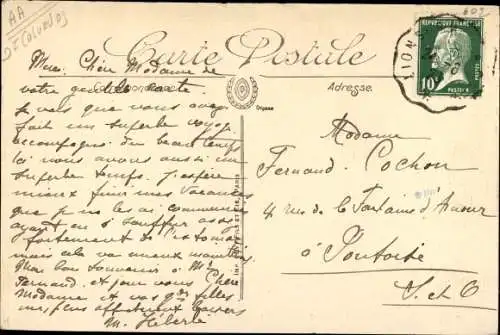 AA
Columbos
Carte Postale
Correspondance
Adresse
RÉPUBLIQUE FRANÇAISE
10c
POSTES
PASTEUR
LYON
Merci Chère Madame de
votre gentille carte
je vois que vous avez
fait un superbe voyage
accompagné du beau temps
Ici nous avons aussi un
superbe temps. J'espère
mieux finir mes vacances
que je ne les ai commencées
ayant eu à souffrir assez
fortement de l'estomac
mais cela va mieux maintenant
Mon bon souvenir à Mr
Fernand et pour vous Chère
Madame et vos gdes filles
mes plus affectueux baisers
M. Héberle
Madame
Fernand Cochon
4 rue de la Fontaine d'Amour
à Pontoise
S. et O